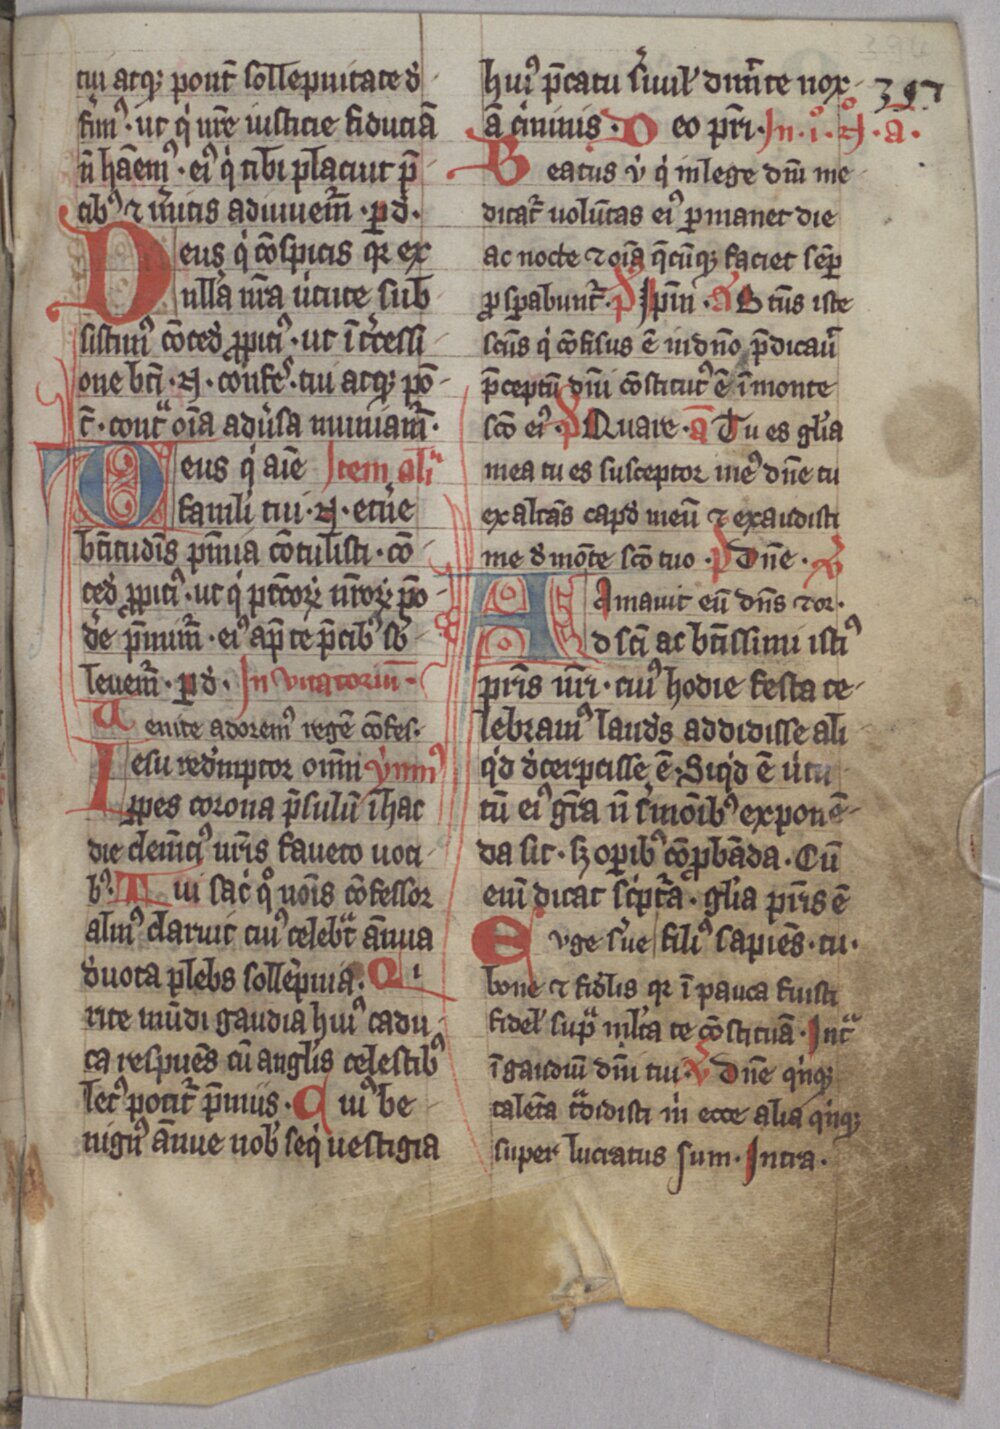 tui atqȝ pont̄ sollēpnitate d̕
fim᷒. ut q̇ nr̄e iusticie fiduciā
n̄ hab̄em᷒. ei᷒ q̇ tibi placuit p̄
cib᷒ ⁊ m̄itis adiuuem̄r. ꝑ d̄.
Deus q̇ cōspicis qr ex
nulla nr̄a u̇tute sub
sistim᷒ cōced̕ ꝓpiti᷒. ut ī t̄cessi
one bt̄i .N. confes̄. tui atqȝ pō
t̄. cont̄ oīa adu̇sa muniam̄r.
Deus q̇ aīe Item al̄i
famuli tui .N. et̄ne
bt̄itudīs p̄mia cōtulisti. cō
ced̕ ꝓpiti᷒. ut q̇ pct̄oꝝ nr̄oꝝ pō
de̕ p̄mim̄r. ei᷒ ap̄ te p̄cib᷒ sb̄
leuem̄r. ꝑ d̄. Inuitatoriū.
Uenite adorem᷒ regē cōfes.
Iesu red̕mptor omīi ymn᷒
ꝓpes corona p̄sulū ī hac
die clem̄ci᷒ nr̄is faueto uoci
b᷒. Tui sac̄ q° nōis cōfessor
alm᷒ claruit cui᷒ celebt̄ ānua
d̕uota plebs sollēpnia. Qi
rite mūdi gaudia hui᷒ cadu
ca respuēs cū angl̄is celestib᷒
let᷒ potit̄ p̄miis. Cui᷒ be
nign᷒ ānue nob̄ seq̇ uestigia
hui᷒ p̄catu s̄uul̄ dim̄te nox
ā c̄minis. Deo pr̄i. In .i. N. a.
397
Beatus v̇ q̇ in lege dn̄i me
ditat̄ uolūtas ei᷒ permanet die
ac nocte ⁊ oīa q̄cūqȝ faciet sēp̄
ꝓsꝑabunt̄. p̄s Ip̄m. a Btūs iste
sc̄us q̇ cōfisus ē in dn̄o p̄dicau̇
p̄ceptū dn̄i cōstitut᷒ ē ī monte
sc̄o ei᷒. p̄s Quare. a Tu es gl̄ia
mea tu es susceptor me᷒ dn̄e tu
exaltās capd̕ meū ⁊ exaudisti
me d̕ mōte sc̄o tuo. p̄s Dn̄e. v̄
Amauit eū dn̄s ⁊ or.
Ad sc̄i ac bt̄issimi isti᷒
pr̄is nr̄i. cui᷒ hodie festa ce
lebram᷒ laud̕s addidisse ali
q̇d d̕cerpcisse ē. Siq̇d ē u̇tu
tū ei᷒ gr̄a n̄ s̄mōib᷒ exponē
da sit. sȝ oꝑib᷒ cōꝓbāda. Cū
eni dicat sc̄pt̄ra. gl̄ia pr̄is ē
Evge su̇e fili᷒ sapiēs. tu.
bone ⁊ fid̕lis qr ī pauca fuisti
fidel̄ supᵃ ml̄ta te cōstituā. Int̄ᵃ
ī gaudiū dn̄i tui v̄ Dn̄e q̇nqȝ
talēta t̄didisti m̄ ecce alia q̇nqȝ
super lucratus sum. Intra.